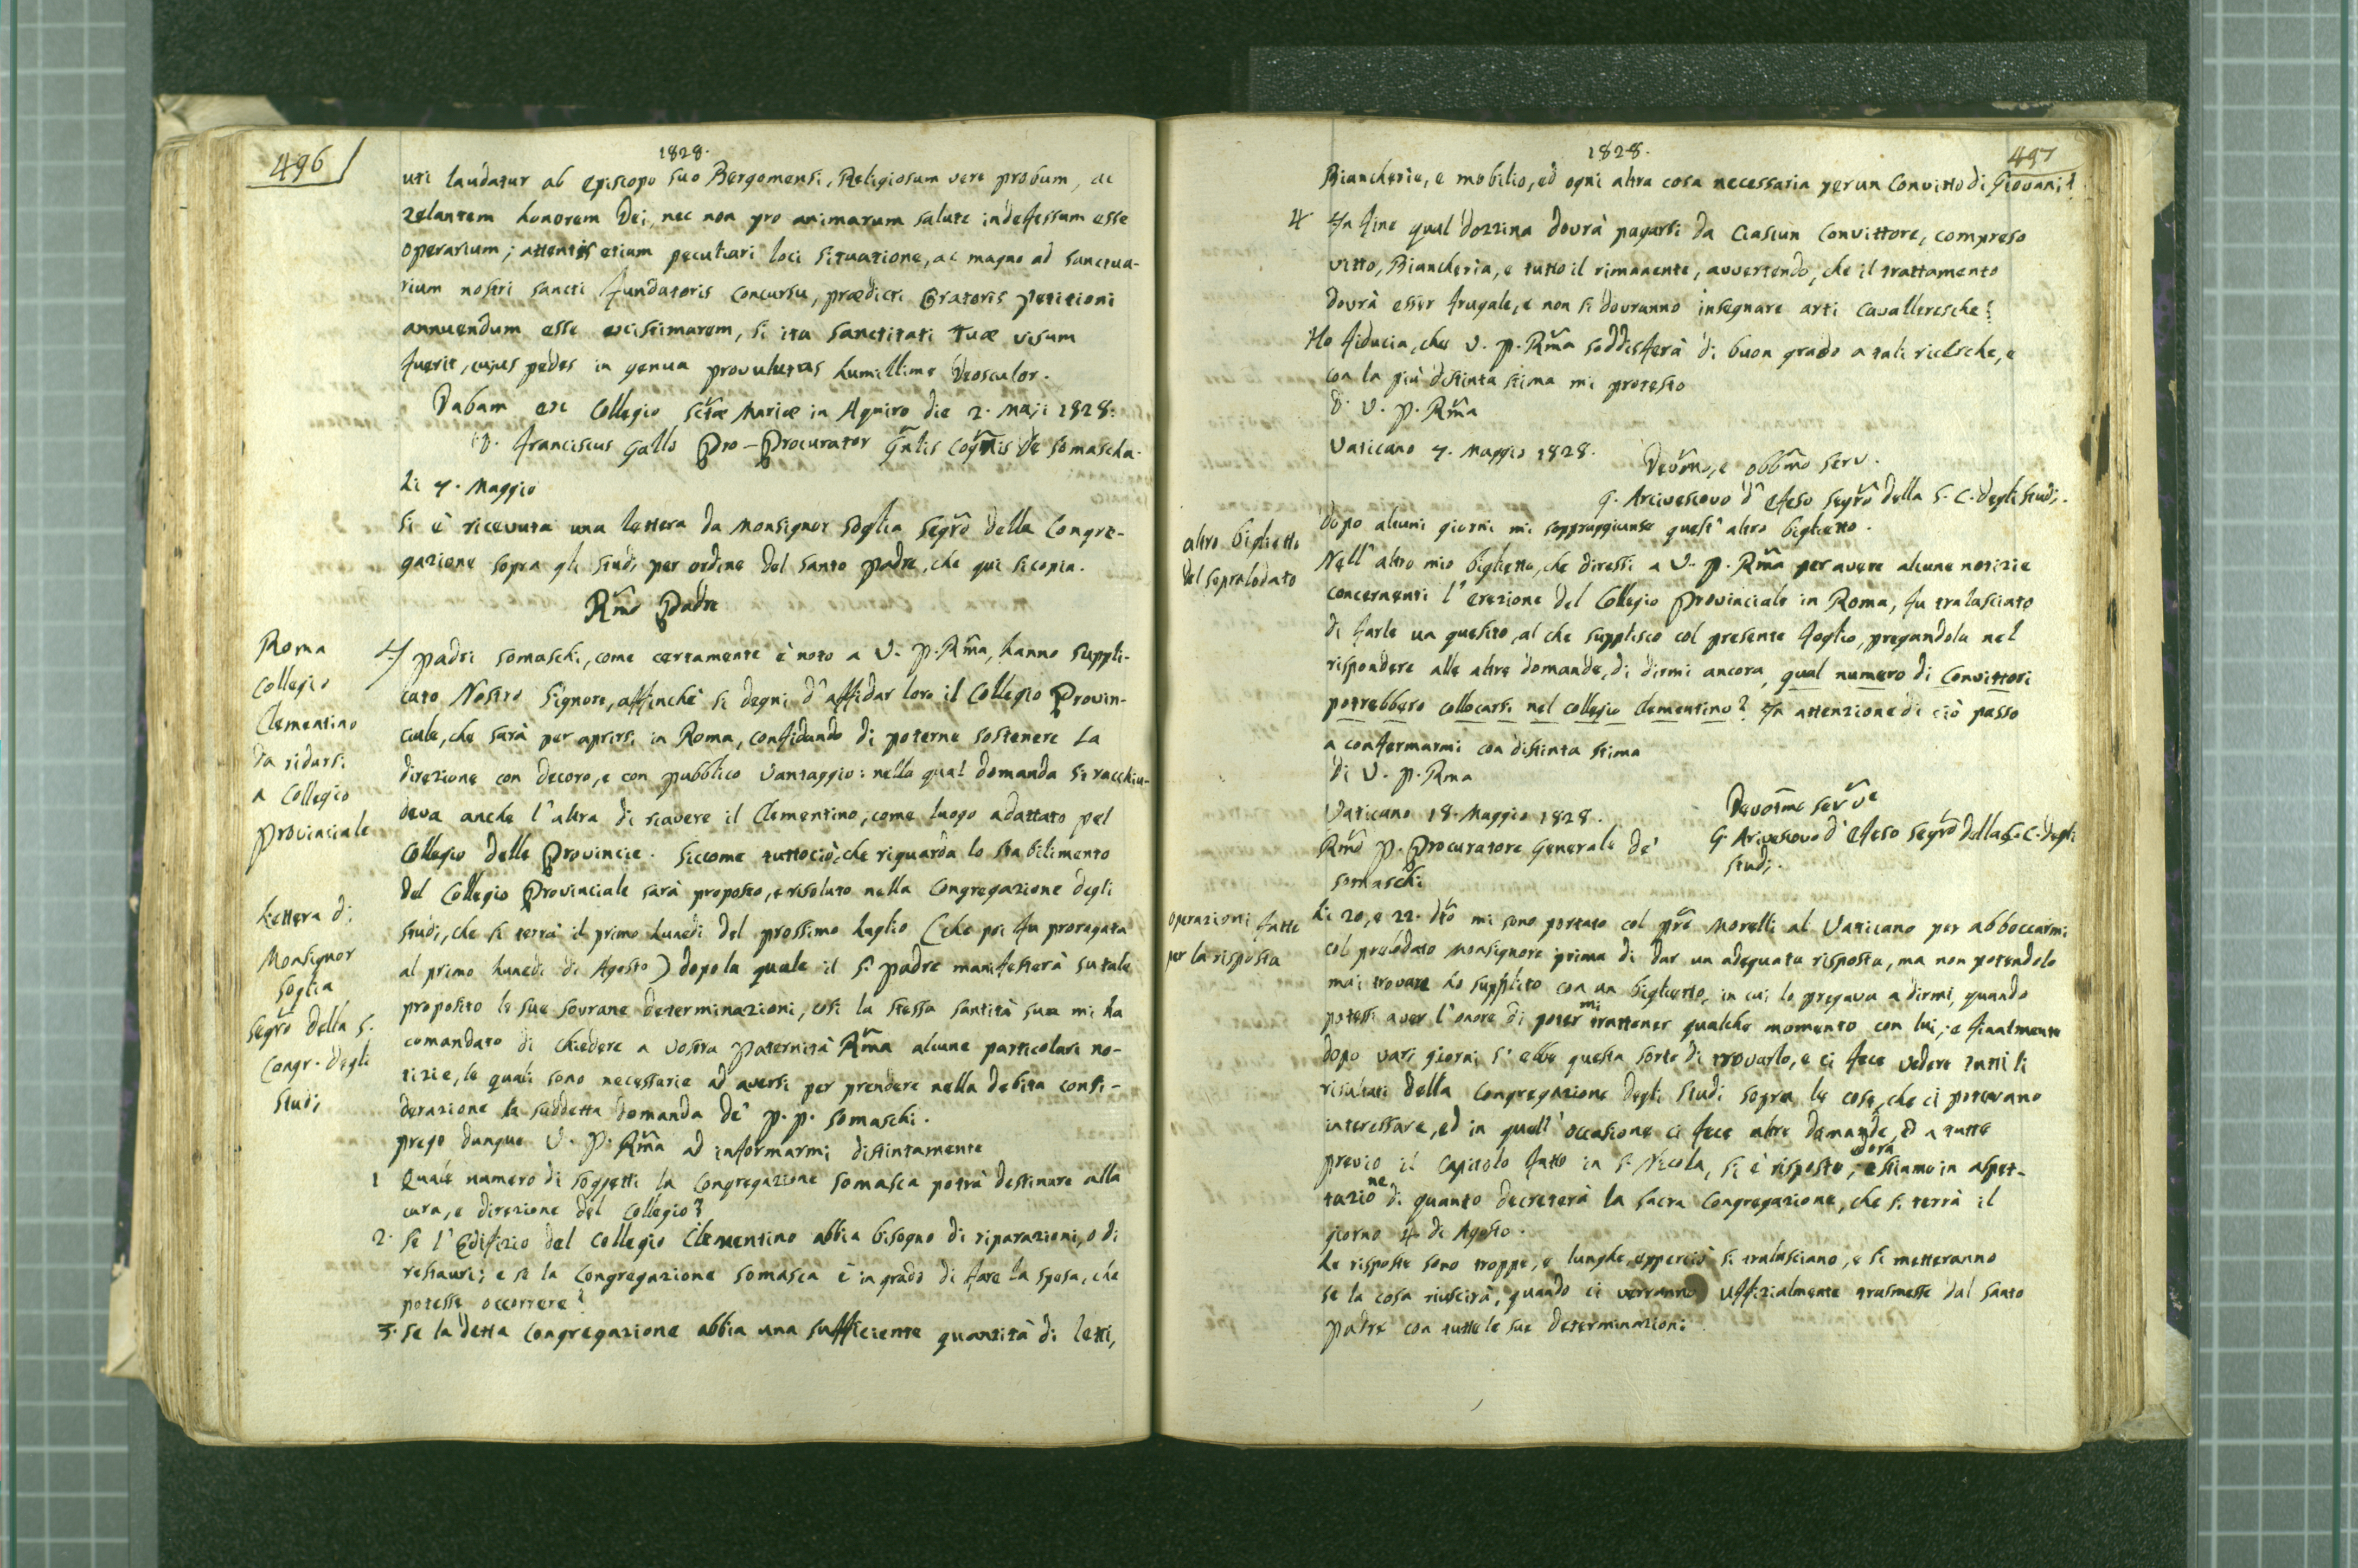 496
1828.
uti laudatur ab Episcopo suo Bergomensi, Religiosum vere probum, ac
zelantem honorem Dei, nec non pro animarum salute indefessum esse
operarium; attentis etiam peculiari loci situatione, ac magno ad sanctua-
rium nostri sancti fundatoris concursu, prædicti Oratoris petitioni
annuendum esse existimarem, si ita Sanctitati Tuæ visum
fuerit, cujus pedes in genua provolutus humillime deosculor.
Dabam ex Collegio sctæ Mariæ in Aquiro die 2. Maji 1828.
D. Franciscus Gallo Pro-Procurator Gnlis Cognis de Somascha.
Li 7. Maggio
Si è ricevuta una lettera da Monsignor Soglia Segro della Congre-
gazione sopra gli Studj per ordine del Santo Padre, che qui si copia.
Rmo Padre
Roma
Collegio
Clementino
da ridursi
a Collegio
Provinciale
I Padri Somaschi, come certamente è noto a V. P. Rma, hanno suppli-
cato Nostro Signore, affinchè si degni d'affidar loro il Collegio Provin-
ciale, che sarà per aprirsi in Roma, confidando di poterne sostenere la
direzione con decoro, e con pubblico vantaggio: nella qual domanda si racchiu-
deva anche l'altra di riavere il Clementino, come luogo adattato pel
Collegio delle Provincie. Siccome tuttociò, che riguarda lo stabilimento
del Collegio Provinciale sarà proposto, e risoluto nella Congregazione degli
Studj, che si terrà il primo Lunedì del prossimo Luglio (che poi fu prorogata
al primo Lunedì di Agosto) dopo la quale il S. Padre manifesterà su tale
proposito le sue sovrane determinazioni, così la stessa Santità sua mi ha
comandato di chiedere a Vostra Paternità Rma alcune particolari no-
tizie, le quali sono necessarie ad aversi per prendere nella debita consi-
derazione la suddetta domanda de' P. P. Somaschi.
Lettera di
Monsignor
Soglia
Segro della S.
Congr. degli
Studj
Prego dunque V. P. Rma ad informarmi distintamente
1 Quale numero di soggetti la Congregazione Somasca potrà destinare alla
cura, e direzione del Collegio?
2. Se l'Edifizio del Collegio Clementino abbia bisogno di riparazioni, o di
restauri; e se la Congregazione Somasca è in grado di fare la spesa, che
potesse occorrere?
3. Se la detta Congregazione abbia una sufficiente quantità di letti,
1828.
497
Biancheria, e mobilio, ed ogni altra cosa necessaria per un Convitto di Giovani?
4 In fine qual dozzina dovrà pagarsi da Ciascun Convittore, compreso
vitto, Biancheria, e tutto il rimanente, avvertendo, che il trattamento
dovrà esser frugale, e non si dovranno insegnare arti Cavalleresche?
Ho fiducia, che V. P. Rma soddisferà di buon grado a tali richieste, e
con la più distinta stima mi protesto
D. V. P. Rma
Vaticano 7. Maggio 1828.
Devmo, e obbmo Serv.
G. Arcivescovo d' Efeso Segro della S. C. degli Studj.
Dopo alcuni giorni mi sopraggiunse quest' altro biglietto.
altro biglietto
del sopralodato
Nell' altro mio biglietto, che diressi a V. P. Rma per avere alcune notizie
concernenti l' erezione del Collegio Provinciale in Roma, fu tralasciato
di farle un quesito, al che supplisco col presente foglio, pregandola nel
rispondere alle altre domande, di dirmi ancora, qual numero di Convittori
potrebbero collocarsi nel collegio Clementino? In attenzione di ciò passo
a confermarmi con distinta stima
di V. P. Rma
Vaticano 18. Maggio 1828.
Devotmo servve
G. Arivescovo d' Efeso Segro della S. C. degli
Studj.
Rmo P. Procuratore Generale de'
Somaschi
operazioni fatte
per la risposta
Li 20, e 22. dto mi sono portato col Pre Morelli al Vaticano per abboccarmi
col prelodato Monsignore prima di dar un adequata risposta, ma non potendolo
mai trovare ho supplito con un biglietto, in cui lo pregava a dirmi, quando
potessi aver l' onore di poter mi trattener qualche momento con lui; e finalmente
dopo varj giorni s' ebbe questa sorte di trovarlo, e ci fece vedere tutti li
risultati della Congregazione degli Studi sopra le cose, che ci potevano
interessare, ed in quell' occasione ci fece altre domande, ed a tutte
previo il Capitolo fatto in S. Nicola, si è risposto; ed ora stiamo in aspet-
tazione di quanto decreterà la sacra Congregazione, che si terrà il
giorno 4 di Agosto.
Le risposte sono troppe, e lunghe, epperciò si tralasciano, e si metteranno
se la cosa riuscirà, quando ci verranno Uffizialmente trasmesse dal Santo
Padre con tutte le sue determinazioni